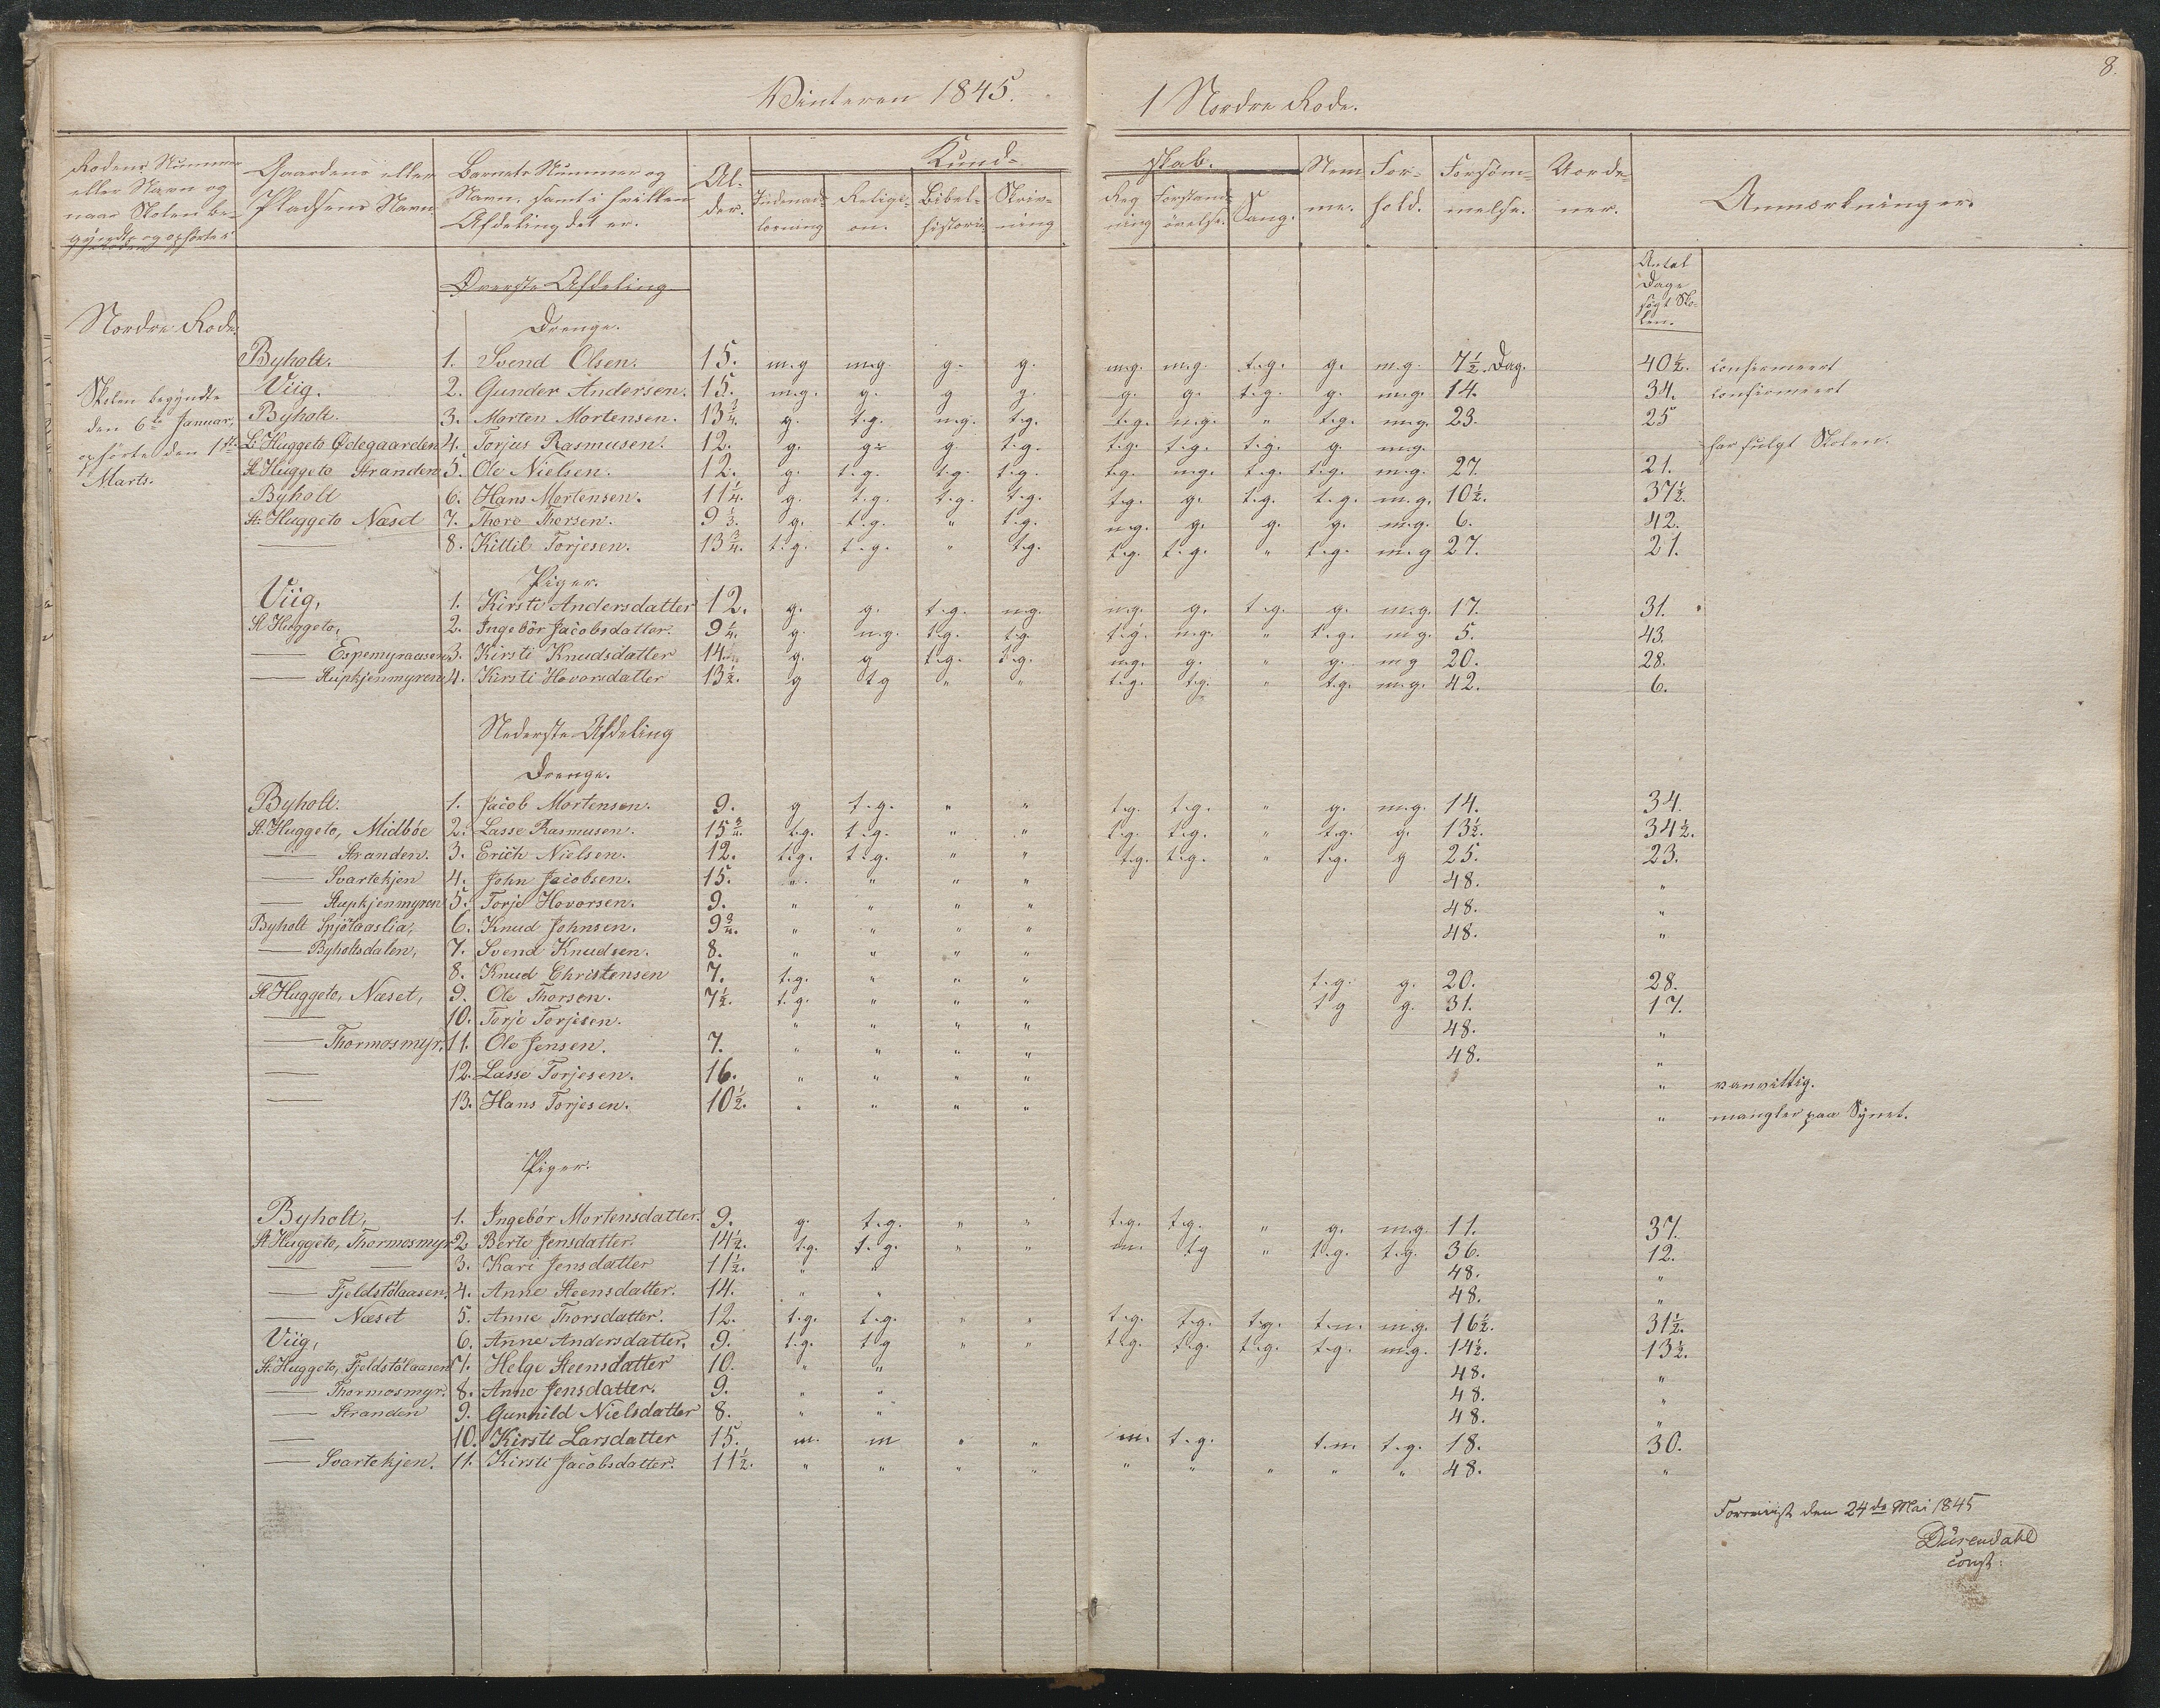 8.
Vinteren 1845.
1 Nordre Rode.
Rodens Nummer eller Navn og naar Skolen begyndte og ophörte i
Gaardens eller Pladsens Navn
Barnets Nummer og Navn, samt i hvilken Afdeling det er.
Alder.
Kundskab.
Indenadslæsning
Religion.
Bibelhistorie
Skrivning
Regning
Forstandsövelse.
Sang.
Nemme.
Forhold.
Forsömmelse.
Uordener.
Anmærkninger.
Antal Dage søgt Skolen.
Øverste Afdeling
Nordre Rode.
Drenge.
Byholt. 1. Svend Olsen. 15. m.g m.g g. g. m.g. m.g. t.g. g. m.g. 7½ Dag. 40½. confirmeert
Skolen begyndte
Viig. 2. Gunder Andersen. 15. m.g. g. g g. g. g. t.g. g. m.g. 14. 34. confirmeert
den 6te Januar,
Byholt. 3. Morten Mortensen. 13¾. g. t.g. m.g. t.g. t.g. m.g. " t.g. m.g. 23. 25
ophörte den 1ste
L: Huggeto Ødegaarden 4. Torjus Rasmusen. 12. g. g. g t.g. t.g. t.g. t.g. g. m.g. har fulgt Skolen.
Marts.
St Huggeto Stranden 5. Ole Nielsen. 12. g. t.g. t.g. t.g. t.g. m.g. t.g. t.g. m.g. 27. 21.
Byholt 6. Hans Mortensen. 11¼. g. t.g. t.g. t.g. t.g. g. t.g. t.g. m.g. 10½. 37½.
St: Huggeto Næset 7. Thore Thorsen. 9⅓. g. t.g. " t.g. m.g. g. g. g. m.g. 6. 42.
— 8. Kittil Torjesen. 13¾. t.g. t.g. " t.g. t.g. t.g. " t.g. m.g 27. 21.
Piger.
Viig, 1. Kirsti Andersdatter 12. g. g. t.g. m.g. m.g. g. t.g. g. m.g. 17. 31.
St Huggeto, 2. Ingebör Jacobsdatter. 9¼. g. m.g. t.g. t.g. t.g. m.g. " t.g. m.g. 5. 43.
— Espemyraasen 3. Kirsti Knudsdatter 14. g. g t.g. t.g. m.g. g. " g. m.g 20. 28.
— Stupkjenmyren 4. Kirsti Hovorsdatter 13½. g t.g " " t.g. t.g. " t.g. m.g. 42. 6.
Nederste Afdeling
Drenge.
Byholt. 1. Jacob Mortensen. 9. g t.g. " " t.g. t.g. " g. m.g. 14. 34.
St. Huggeto, Midböe 2. Lasse Rasmusen. 15¾. t.g. t.g. " " t.g. t.g. " t.g. g. 13½. 34½.
— Stranden. 3. Erich Nielsen. 12. t.g. t.g. " " t.g. t.g. " t.g. g 25. 23.
— Svartekjen 4. John Jacobsen. 15. " " " " 48. "
— Stupkjenmyren 5. Torje Hovorsen. 9. " " " " 48. "
Byholt Spjötaaslia, 6. Knud Johnsen. 9¾. " " " " 48. "
— Byholtsdalen, 7. Svend Knudsen. 8. " " " "
— 8. Knud Christensen 7. t.g. " " " t.g. g. 20. 28.
St Huggeto, Næset, 9. Ole Thorsen. 7½. t.g. " " " t.g g. 31. 17.
— 10. Torje Torjesen. " " " " 48. "
— Thormosmyr. 11. Ole Jensen. 7. " " " " 48. "
— 12. Lasse Torjesen. 16. " " " " " vanvittig.
— 13. Hans Torjesen. 10½. " " " " " mangler paa Synet.
Piger.
Byholt, 1. Ingebör Mortensdatter. 9. g. t.g. " " t.g. t.g. " g. m.g. 11. 37.
St Huggeto, Thormosmyr 2 Berte Jensdatter. 14½. t.g. t.g. " " m. t.g " t.g. t.g. 36. 12.
— — 3. Kari Jensdatter 11½. " " 48. "
— Fjeldstölaasen, 4. Anne Steensdatter. 14. " " 48. "
— Næset 5. Anne Thorsdatter. 12. t.g. t.g. " " t.g. t.g. t.g. t.m. m.g. 16½. 31½.
Viig, 6. Anne Andersdatter. 9. t.g. t.g " " t.g. t.g. t.g. t.g. m.g. 14½. 13½.
St. Huggeto, Fjeldstölaasen 7. Helge Steensdatter 10. " " 48. "
— Thormosmyr. 8. Anne Jensdatter. 9. " " 48. "
— Stranden 9. Gunnild Nielsdatter 8. " " 48. "
— 10. Kirsti Larsdatter 15. m. m " " m. t.g. t.m. t.g. 18. 30.
— Svartekjen. 11. Kirsti Jacobsdatter. 11½. " " " " " " " " " 48. "
Foreviist den 24de Mai 1845
const: